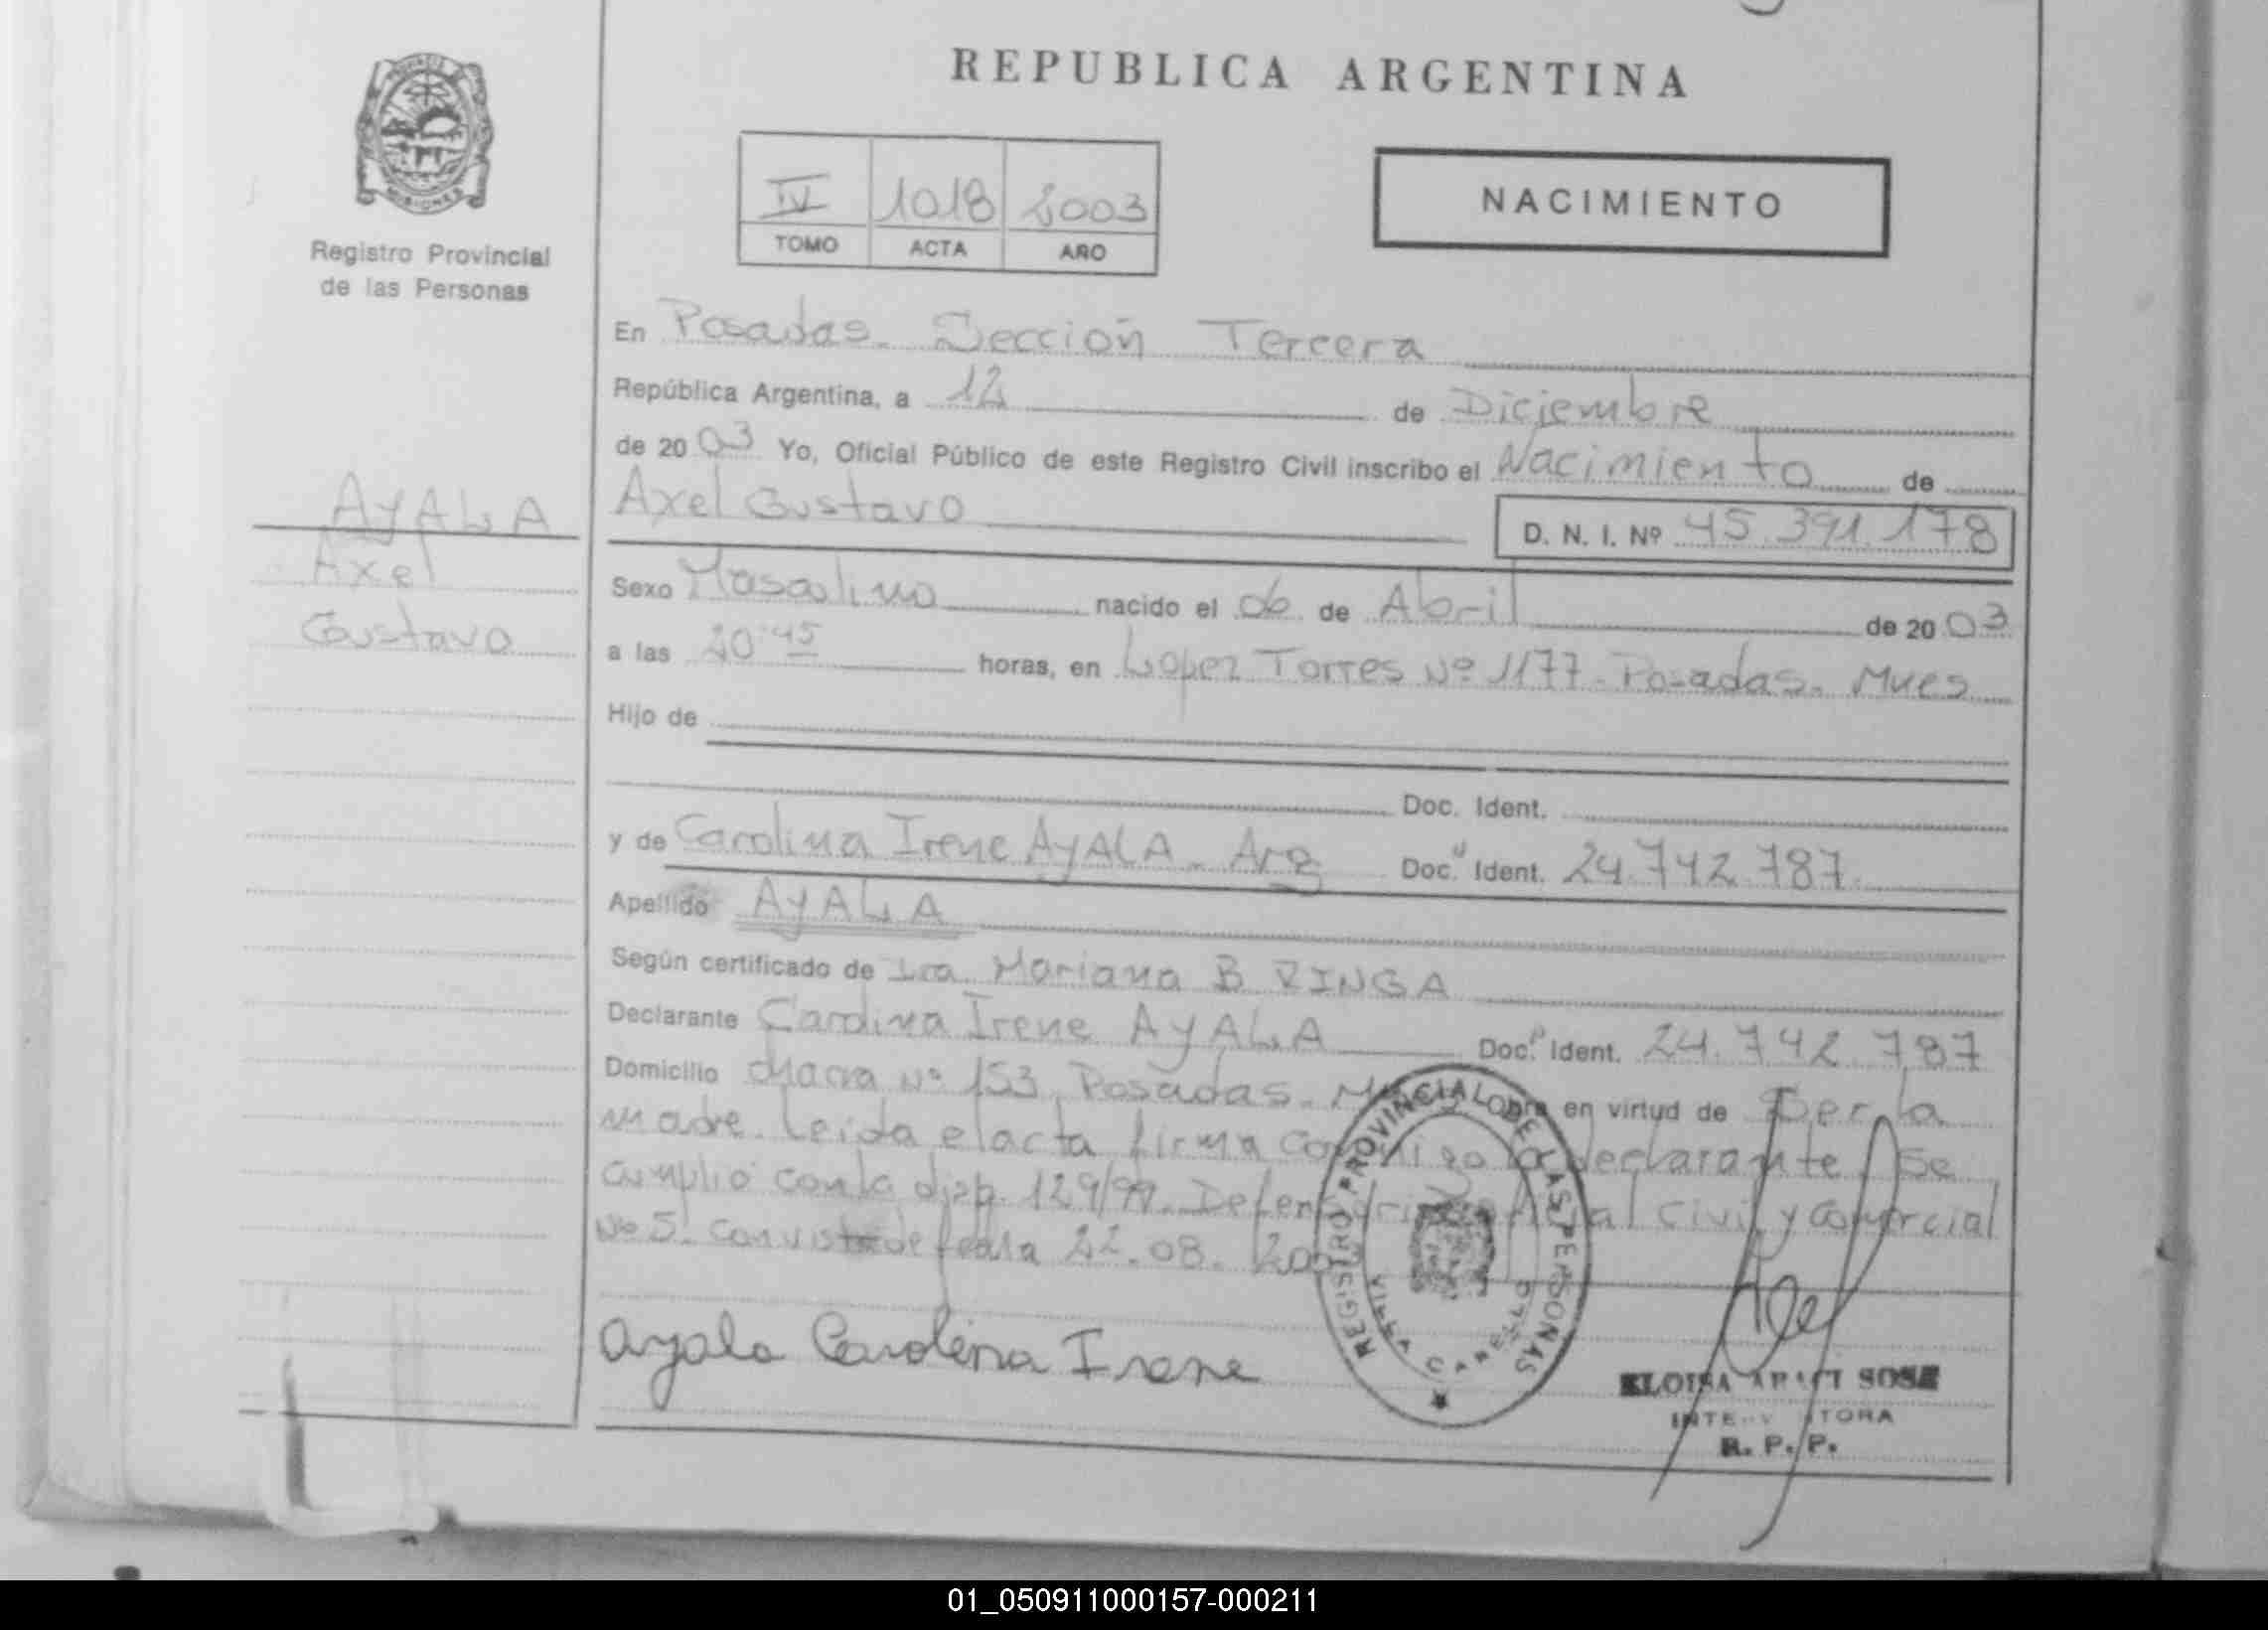 REPUBLICA ARGENTINA
IV 1018 2003
TOMO ACTA AÑO
NACIMIENTO
PROVINCIA DE
MISIONES
Registro Provincial
de las Personas
AYALA
Axel
Gustavo
En Posadas. Sección Tercera
República Argentina, a 12 de Diciembre
de 2003 Yo, Oficial Público de este Registro Civil inscribo el Nacimiento de
Axel Gustavo D. N. I. Nº 45.391.178
Sexo Masculino nacido el 06 de Abril de 2003
a las 20:45 horas, en Lopez Torres Nº 1177. Posadas. Mnes
Hijo de
Doc. Ident.
y de Carolina Irene AYALA. Arg Doc. Ident. 24.742.787.
Apellido AYALA
Según certificado de Dra. Mariana B
Declarante Carolina Irene AYALA Doc. Ident. 24.742.787
Domicilio Chacra Nº 153. Posadas. Obra en virtud de Ser la
madre. Leida el acta firma conmigo la declarante. Se
cumplió con la disp. 129/99. Civil y Comercial
Nº 5. con vista de fecha 22.08.
Ayala Carolina Irene
REGISTRO PROVINCIAL DE LAS PERSONAS
ELOISA ARACI SOSE
INTERVENTORA
R. P. P.
01_050911000157-000211